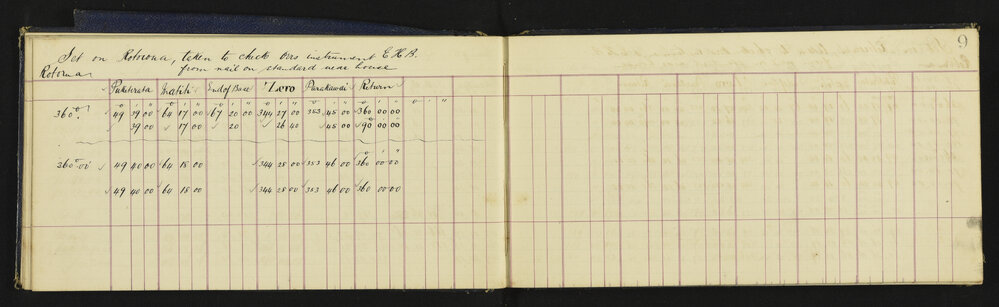 9
Set on Rotorona, taken to check Obs instrument E.H.B.
Rotorua from nail on standard near house
Puketerata Inatiti End of Base Zero Parakawai Return
° ' " ° ' " ° ' " ° ' " ° ' " ° ' "
360° 49 39 00 64 17 00 67 20 00 344 27 00 353 45 00 360 00 00
39 00 17 00 20 26 40 45 00 90 00 00
360° 00' 49 40 00 64 18 00 344 28 00 353 46 00 360 00 00
49 40 00 64 18 00 344 28 00 353 46 00 360 00 00